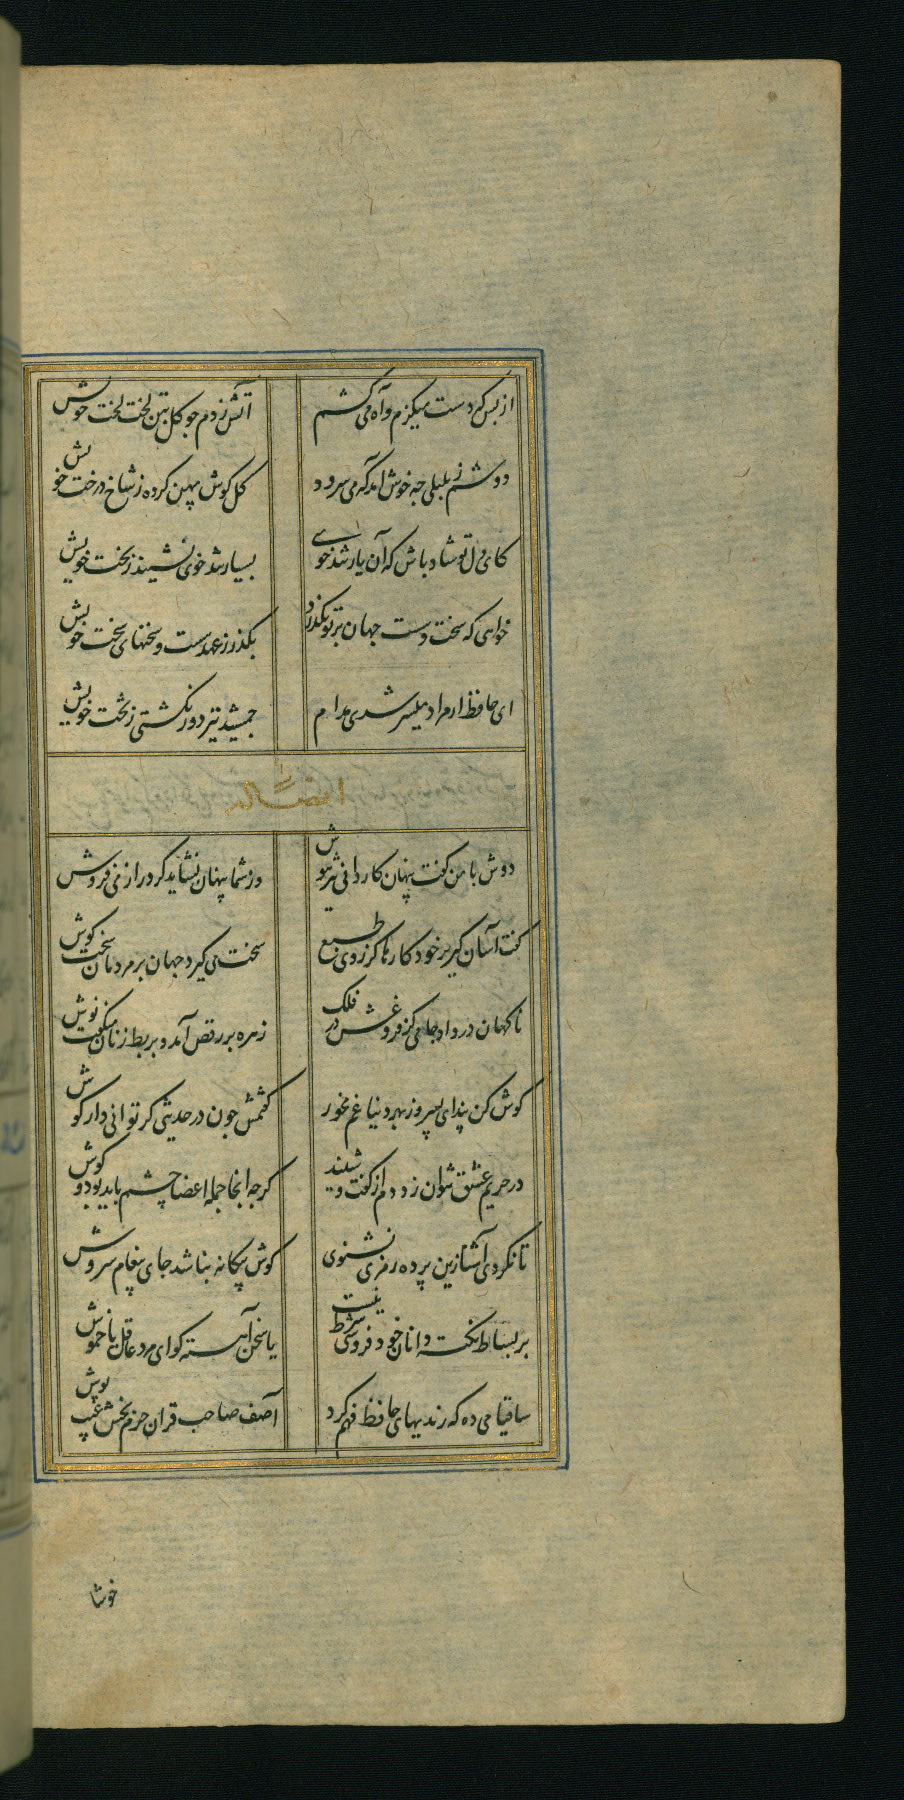 از بس که دست میگزم و آه می کشم
آتش زدم جو کل بتن لخت لخت خویش
دوشم ز بلبلی جه خوش امد که می سرود
کل کوش پهن کرده ز شاخ درخت خویش
کای دل تو شاد باش که آن یار تند خوی
بسیار تند خوی نشیند ز بخت خویش
خواهی که سخت و سست جهان بر تو بکذرد
بکذر ز عهد سست و سخنهای سخت خویش
ای حافظ ار مراد میسر شدی مدام
جمشید نیز دور نکشتی ز تخت خویش
ایضا له
دوش با من کفت پنهان کاردانی تیز هوش
وز شما پنهان نشاید کرد راز می فروش
کفت آسان کیر بر خود کارها کز روی طبع
سخت می کیرد جهان بر مردمان سخت کوش
ناکهان در داد جامی کز فروغش در فلک
زهره بر رقص آمد و بربط زنان میکفت نوش
کوش کن پند ای پسر وز بهر دنیا غم مخور
کفتمش جون در حدیثی کر توانی دار کوش
در حریم عشق نتوان زد دم از کفت و شنید
کرجه انجا جمله اعضا چشم باید بود و کوش
تا نکردی آشنا زین پرده رمزی نشنوی
کوش بیکانه نباشد جای پیغام سروش
بر بساط نکته دانان خود فروشی شرط نیست
یا سخن آهسته کو ای مرد عاقل یا خموش
ساقیا می ده که رندیهای حافظ فهم کرد
آصف صاحب قران جرم بخش عیب پوش
خوشا